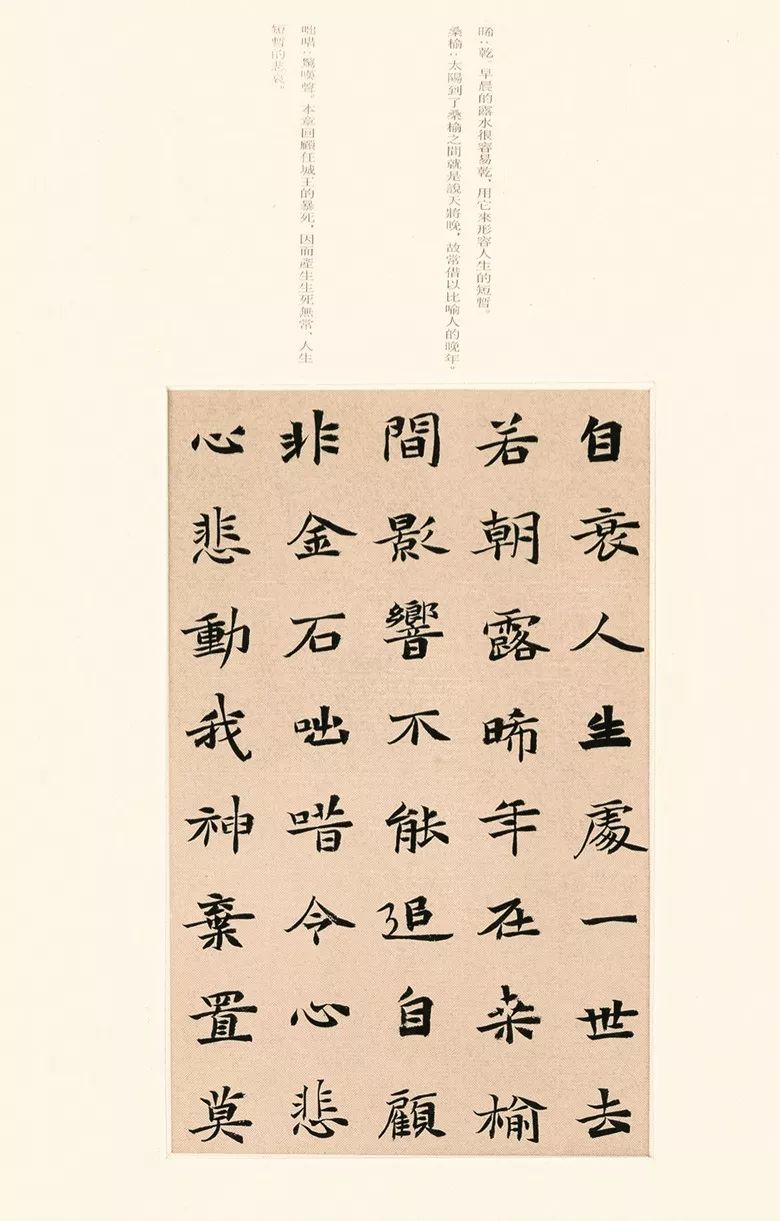 晞：乾。早晨的露水很容易乾，用它來形容人生的短暫。
桑榆：太陽到了桑榆之間就是說天將晚，故常借以比喻人的晚年。
咄唶：驚嘆聲。本章回顧任城王的暴死，因而產生生死無常、人生
短暫的悲哀。
自衰人生處一世去
若朝露晞年在桑榆
間影響不能追自顧
非金石咄唶令心悲
心悲動我神棄置莫